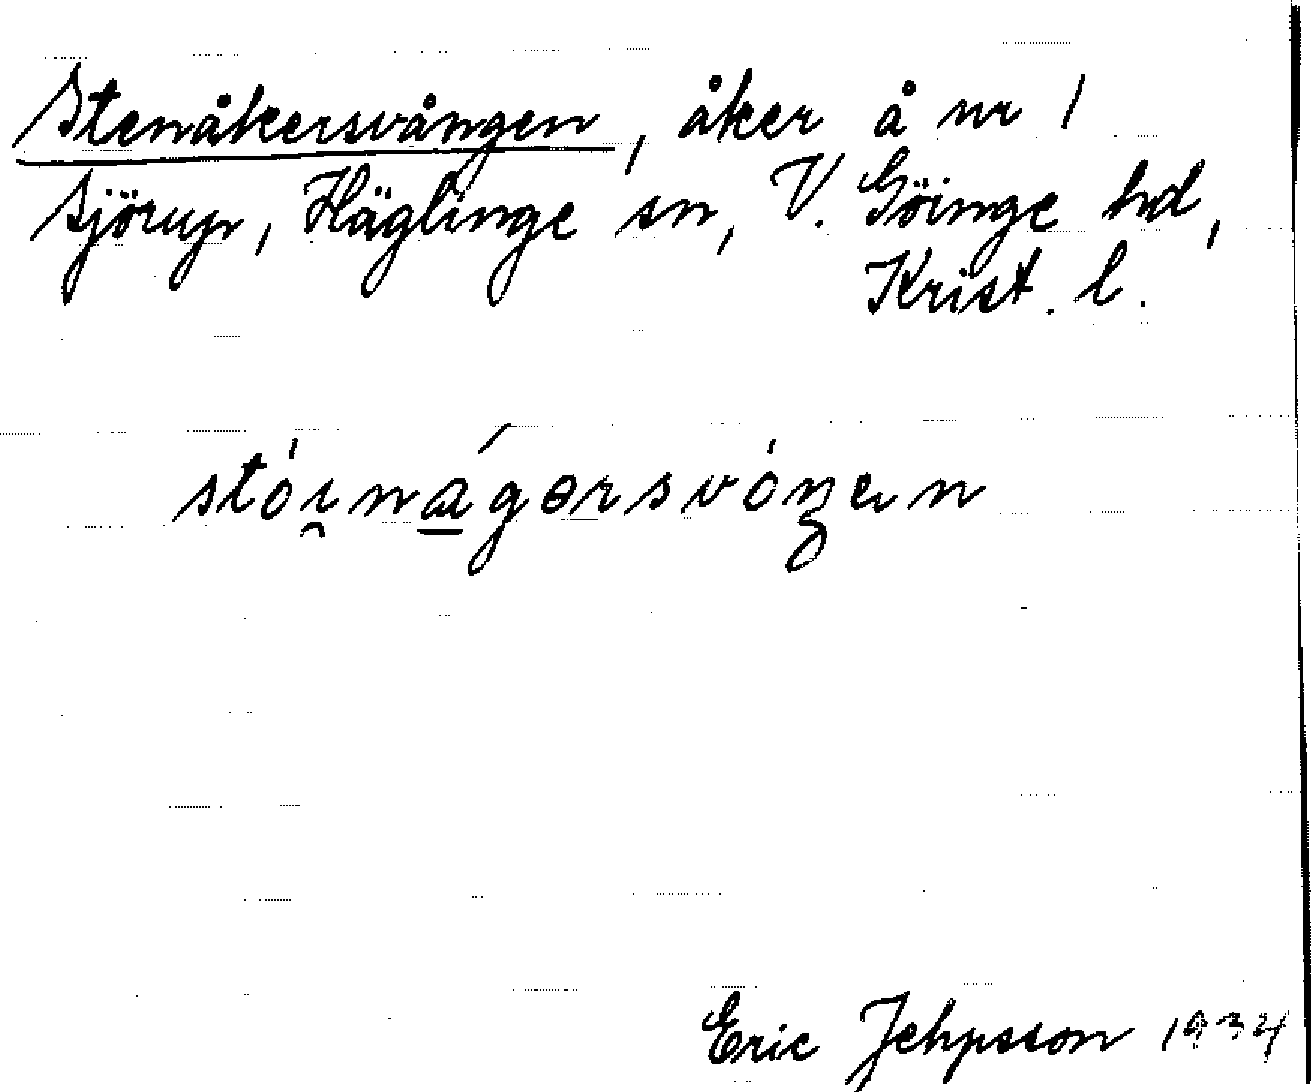 Stenåkersvången, åker å nr 1
Sjörup, Häglinge sn, V. Göinge hd,
Krist. l.
stói̯nágərsvóŋen
Eric Jeppsson 1934